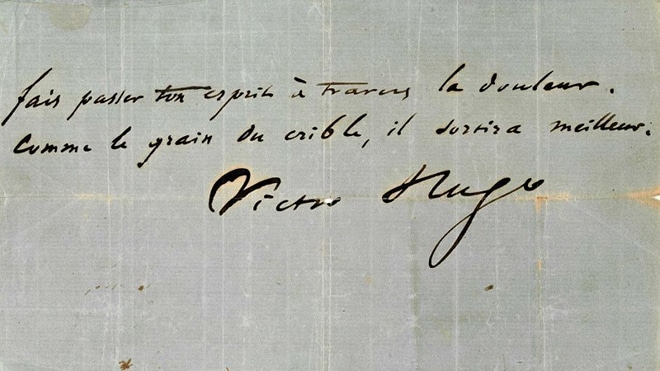 fais passer ton esprit à travers la douleur.
Comme le grain du crible, il sortira meilleur.
Victor Hugo